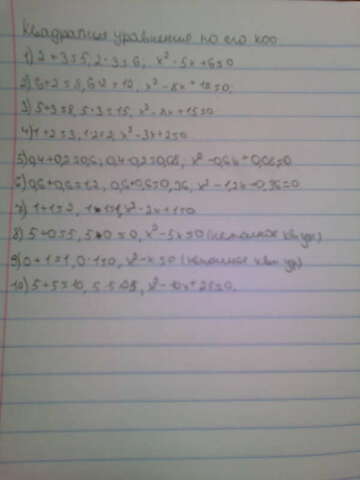 Квадратные уравнения по его коо
1) 2+3=5, 2·3=6, x²-5x+6=0
2) 6+2=8, 6·2=12, x²-8x+12=0
3) 5+3=8, 5·3=15, x²-8x+15=0
4) 1+2=3, 1·2=2, x²-3x+2=0
5) 0,4+0,2=0,6, 0,4·0,2=0,08, x²-0,6x+0,08=0
6) 0,6+0,6=1,2, 0,6·0,6=0,36, x²-1,2x+0,36=0
7) 1+1=2, 1·1=1, x²-2x+1=0
8) 5+0=5, 5·0=0, x²-5x=0 (неполное кв ур)
9) 0+1=1, 0·1=0, x²-x=0 (неполное кв ур)
10) 5+5=10, 5·5=25, x²-10x+25=0.